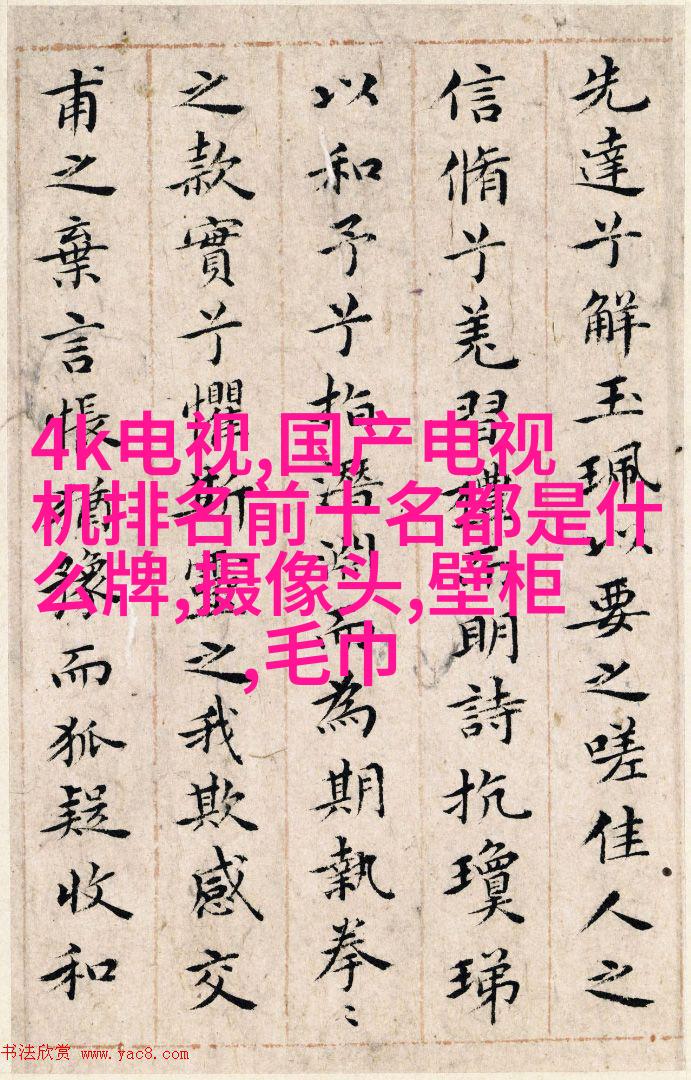 先達兮解玉珮以要之嗟佳人之
信脩兮羌習禮而明詩抗瓊珶
以和予兮指潛淵而為期執拳〻
之款實兮懼斯靈之我欺感交
甫之棄言悵猶豫而狐疑收和
4k电视,国产电视
机排名前十名都是什
么牌,摄像头,壁柜
,毛巾
书法欣赏 www.yac8.com